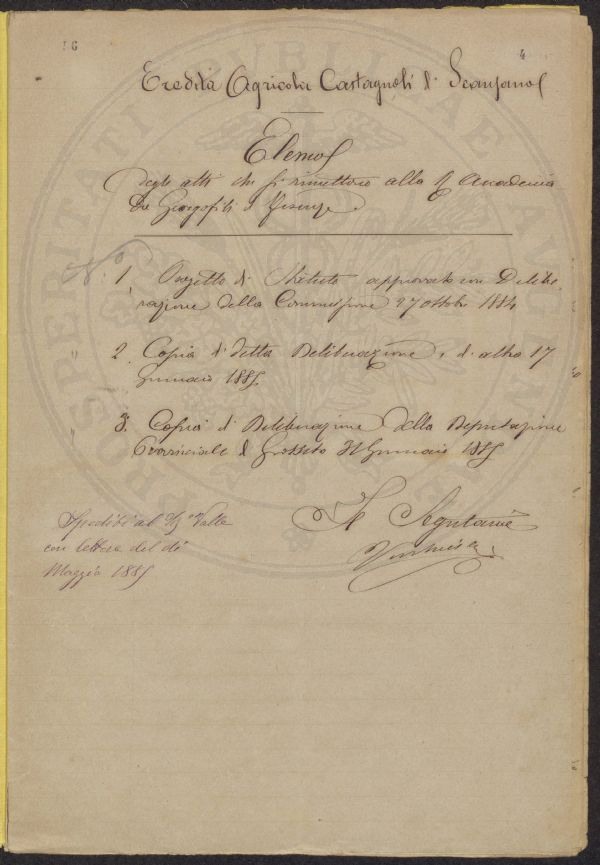 16
4
Eredità Agricola Castagnoli di Scansano
Elenco
degli atti che si rimettono alla R Accademia
dei Georgofili di Firenze
N.o
1. Progetto di Statuto approvato con Delibe
razione della Commissione 27 Ottobre 1884
2. Copia di detta Deliberazione, e di altra 17
Gennaio 1885
3. Copia di Deliberazione della Deputazione
Provinciale di Grosseto 31 Gennaio 1885
Il Segretario
Spedibi al Valle
con lettera del dì
Maggio 1885
PROSPERITATI PUBLICAE AUGENDAE